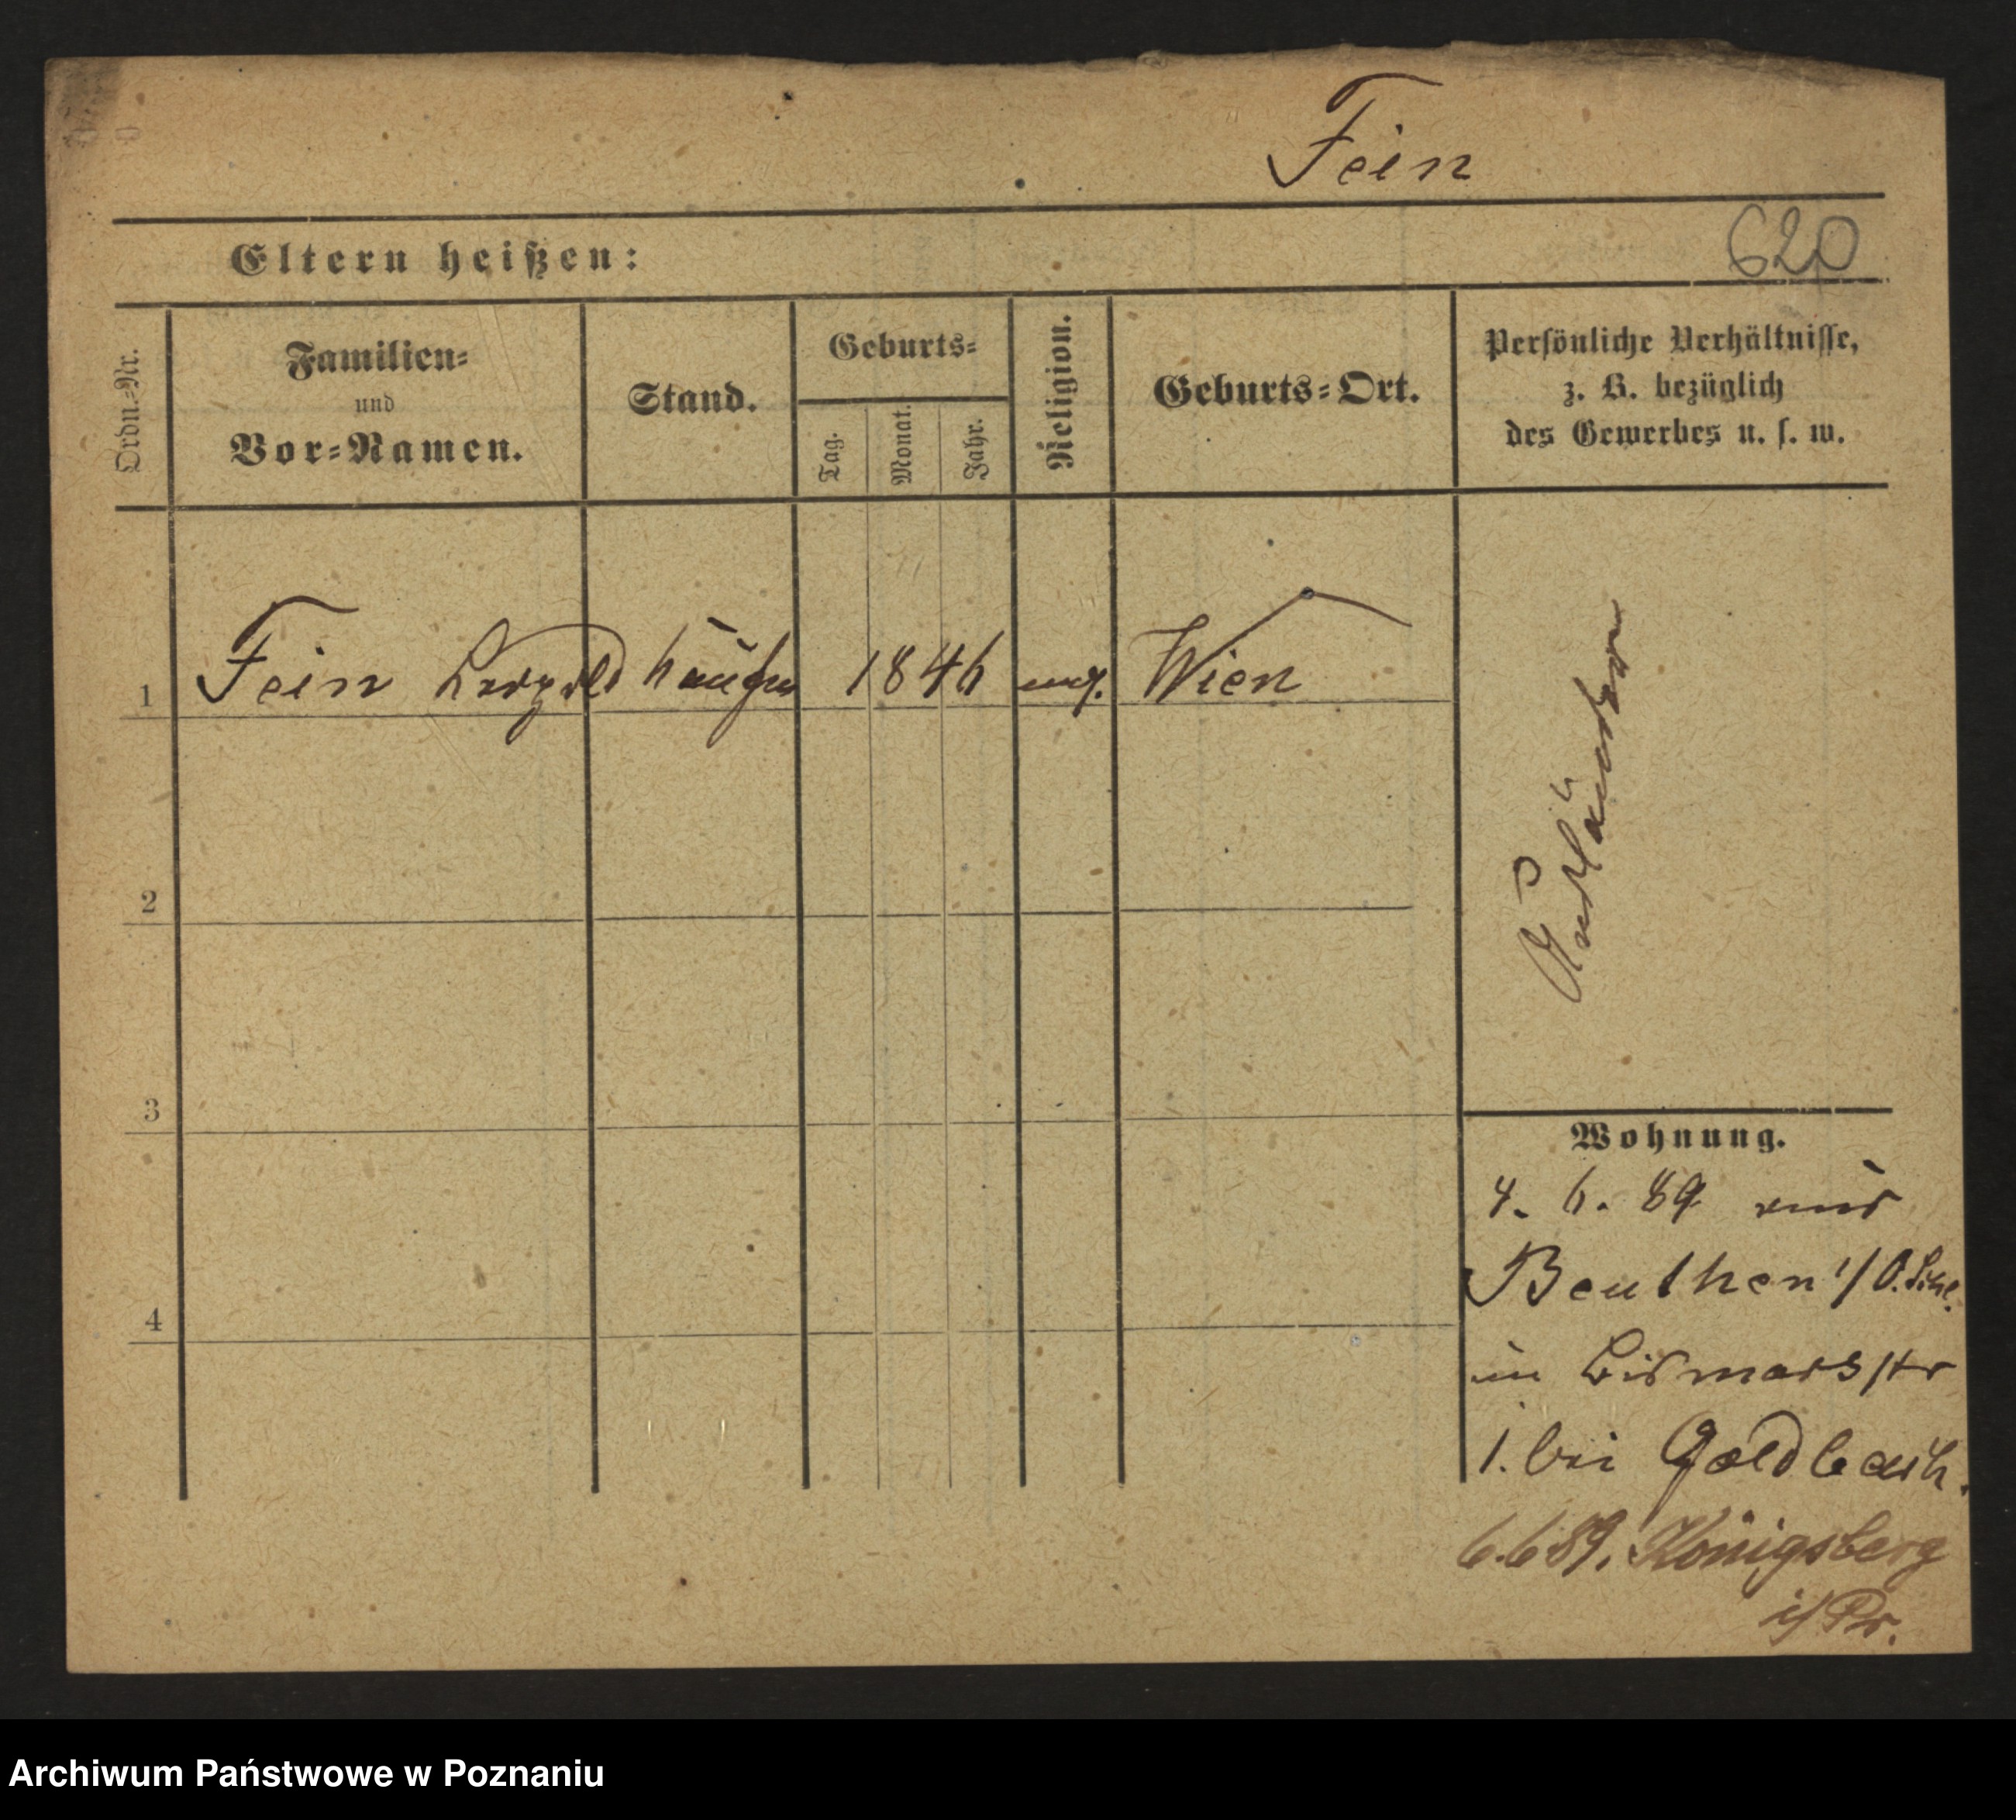 Fein
620
Eltern heißen:
Ordn.-Nr.
Familien-
und
Vor-Namen.
Stand.
Geburts-
Tag.
Monat.
Jahr.
Religion.
Geburts-Ort.
Persönliche Verhältnisse,
z. B. bezüglich
des Gewerbes u. s. w.
1 Fein Leopold 1846 Wien
Ausländer
2
3
4
Wohnung.
4. 6. 89 aus
Beuthen i/O.Schl.
in Bismarkstr
1. bei Goldbach.
6.6 89. Königsberg
i/ Pr.
Archiwum Państwowe w Poznaniu